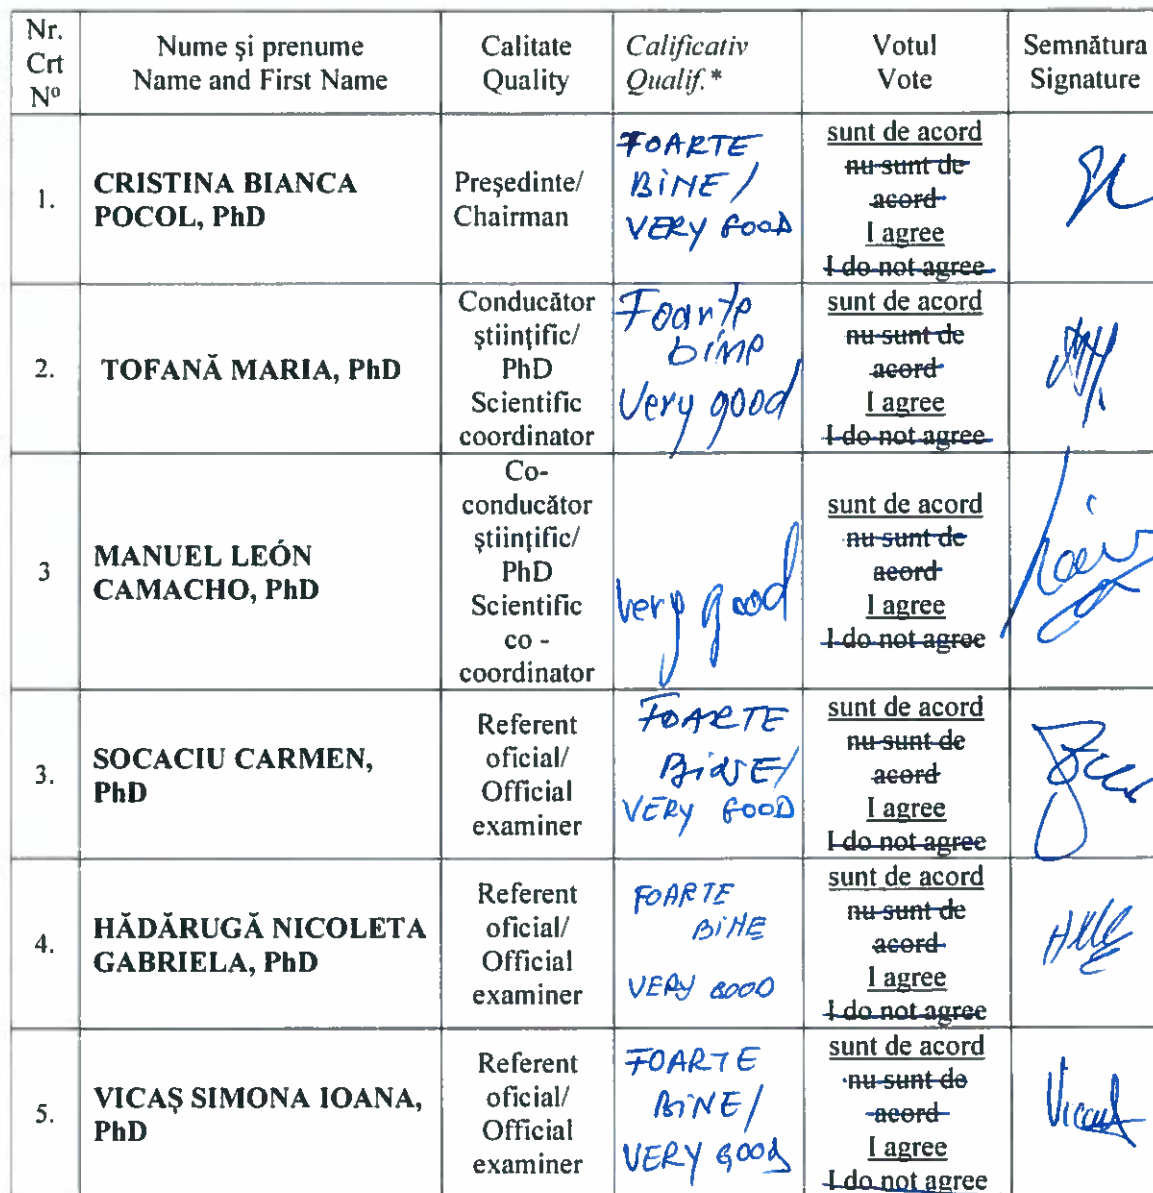 Nr.
Crt
Nº
Nume și prenume
Name and First Name
Calitate
Quality
Calificativ
Qualif.*
Votul
Vote
Semnătura
Signature
1.
CRISTINA BIANCA
POCOL, PhD
Președinte/
Chairman
FOARTE
BINE /
VERY GOOD
sunt de acord
nu sunt de
acord
I agree
I do not agree
2.
TOFANĂ MARIA, PhD
Conducător
științific/
PhD
Scientific
coordinator
Foarte
bine
Very good
sunt de acord
nu sunt de
acord
I agree
I do not agree
3
MANUEL LEÓN
CAMACHO, PhD
Co-
conducător
științific/
PhD
Scientific
co -
coordinator
very good
sunt de acord
nu sunt de
acord
I agree
I do not agree
3.
SOCACIU CARMEN,
PhD
Referent
oficial/
Official
examiner
FOARTE
BINE/
VERY GOOD
sunt de acord
nu sunt de
acord
I agree
I do not agree
4.
HĂDĂRUGĂ NICOLETA
GABRIELA, PhD
Referent
oficial/
Official
examiner
FOARTE
BINE
VERY GOOD
sunt de acord
nu sunt de
acord
I agree
I do not agree
5.
VICAȘ SIMONA IOANA,
PhD
Referent
oficial/
Official
examiner
FOARTE
BINE/
VERY GOOD
sunt de acord
nu sunt de
acord
I agree
I do not agree